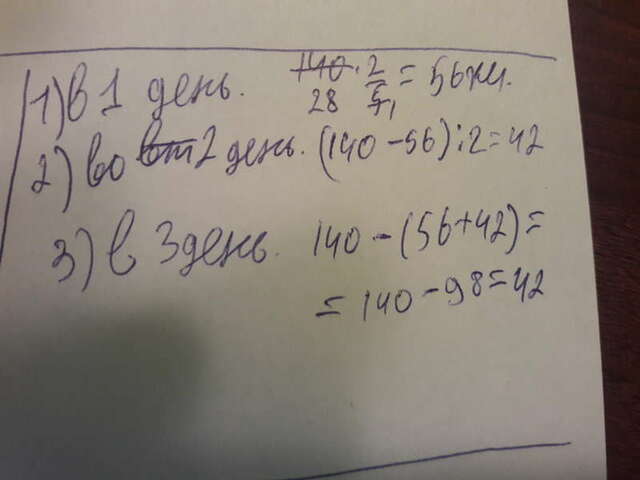 1) В 1 день. 140 · 2/5 = 56 км.
28 1
2) Во 2 день. (140 - 56) : 2 = 42
3) В 3 день. 140 - (56 + 42) =
= 140 - 98 = 42